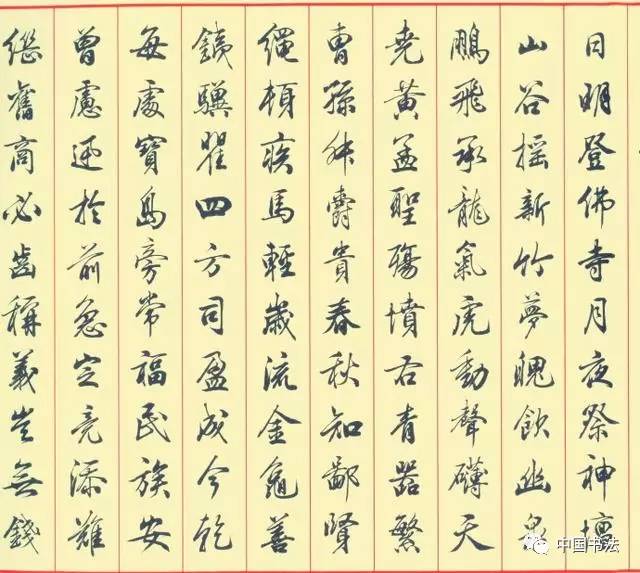 日明登佛寺月夜祭神壇
山谷摇新竹夢魄飲幽泉
鵬飛承龍氣虎動聲礴天
堯黄孟聖殤墳右青器繁
曹孫爵貴春秋知鄙賢
繩頓疾馬輕歲流金龜善
驥瞿四方司盈成今乾
每處寶島旁常福民族安
曾慮於前急定竟添難
繼舊商必齒稱義豈無錢
中国书法